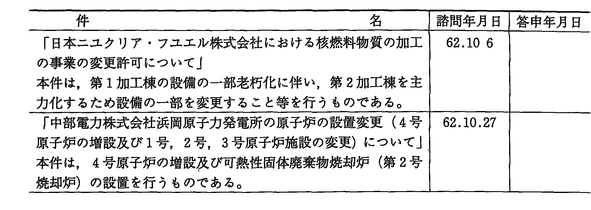 件名 諮問年月日 答申年月日
「日本ニユクリア・フユエル株式会社における核燃料物質の加工 62.10 6
の事業の変更許可について」
本件は，第1加工棟の設備の一部老朽化に伴い，第2加工棟を主
力化するため設備の一部を変更すること等を行うものである。
「中部電力株式会社浜岡原子力発電所の原子炉の設置変更（4号 62.10.27
原子炉の増設及び1号，2号，3号原子炉施設の変更）について」
本件は，4号原子炉の増設及び可熱性固体廃棄物焼却炉（第2号
焼却炉）の設置を行うものである。